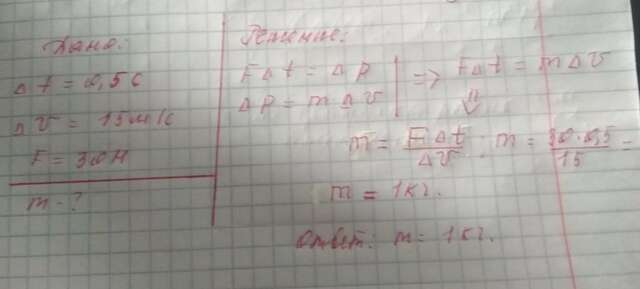 Дано:
Δt = 0,5 с
Δv = 15 м/с
F = 30 Н
m - ?
Решение:
FΔt = Δp
Δp = mΔv
=> FΔt = mΔv
⇓
m = FΔt/Δv; m = 30·0,5/15 =
m = 1 кг.
Ответ: m = 1 кг.